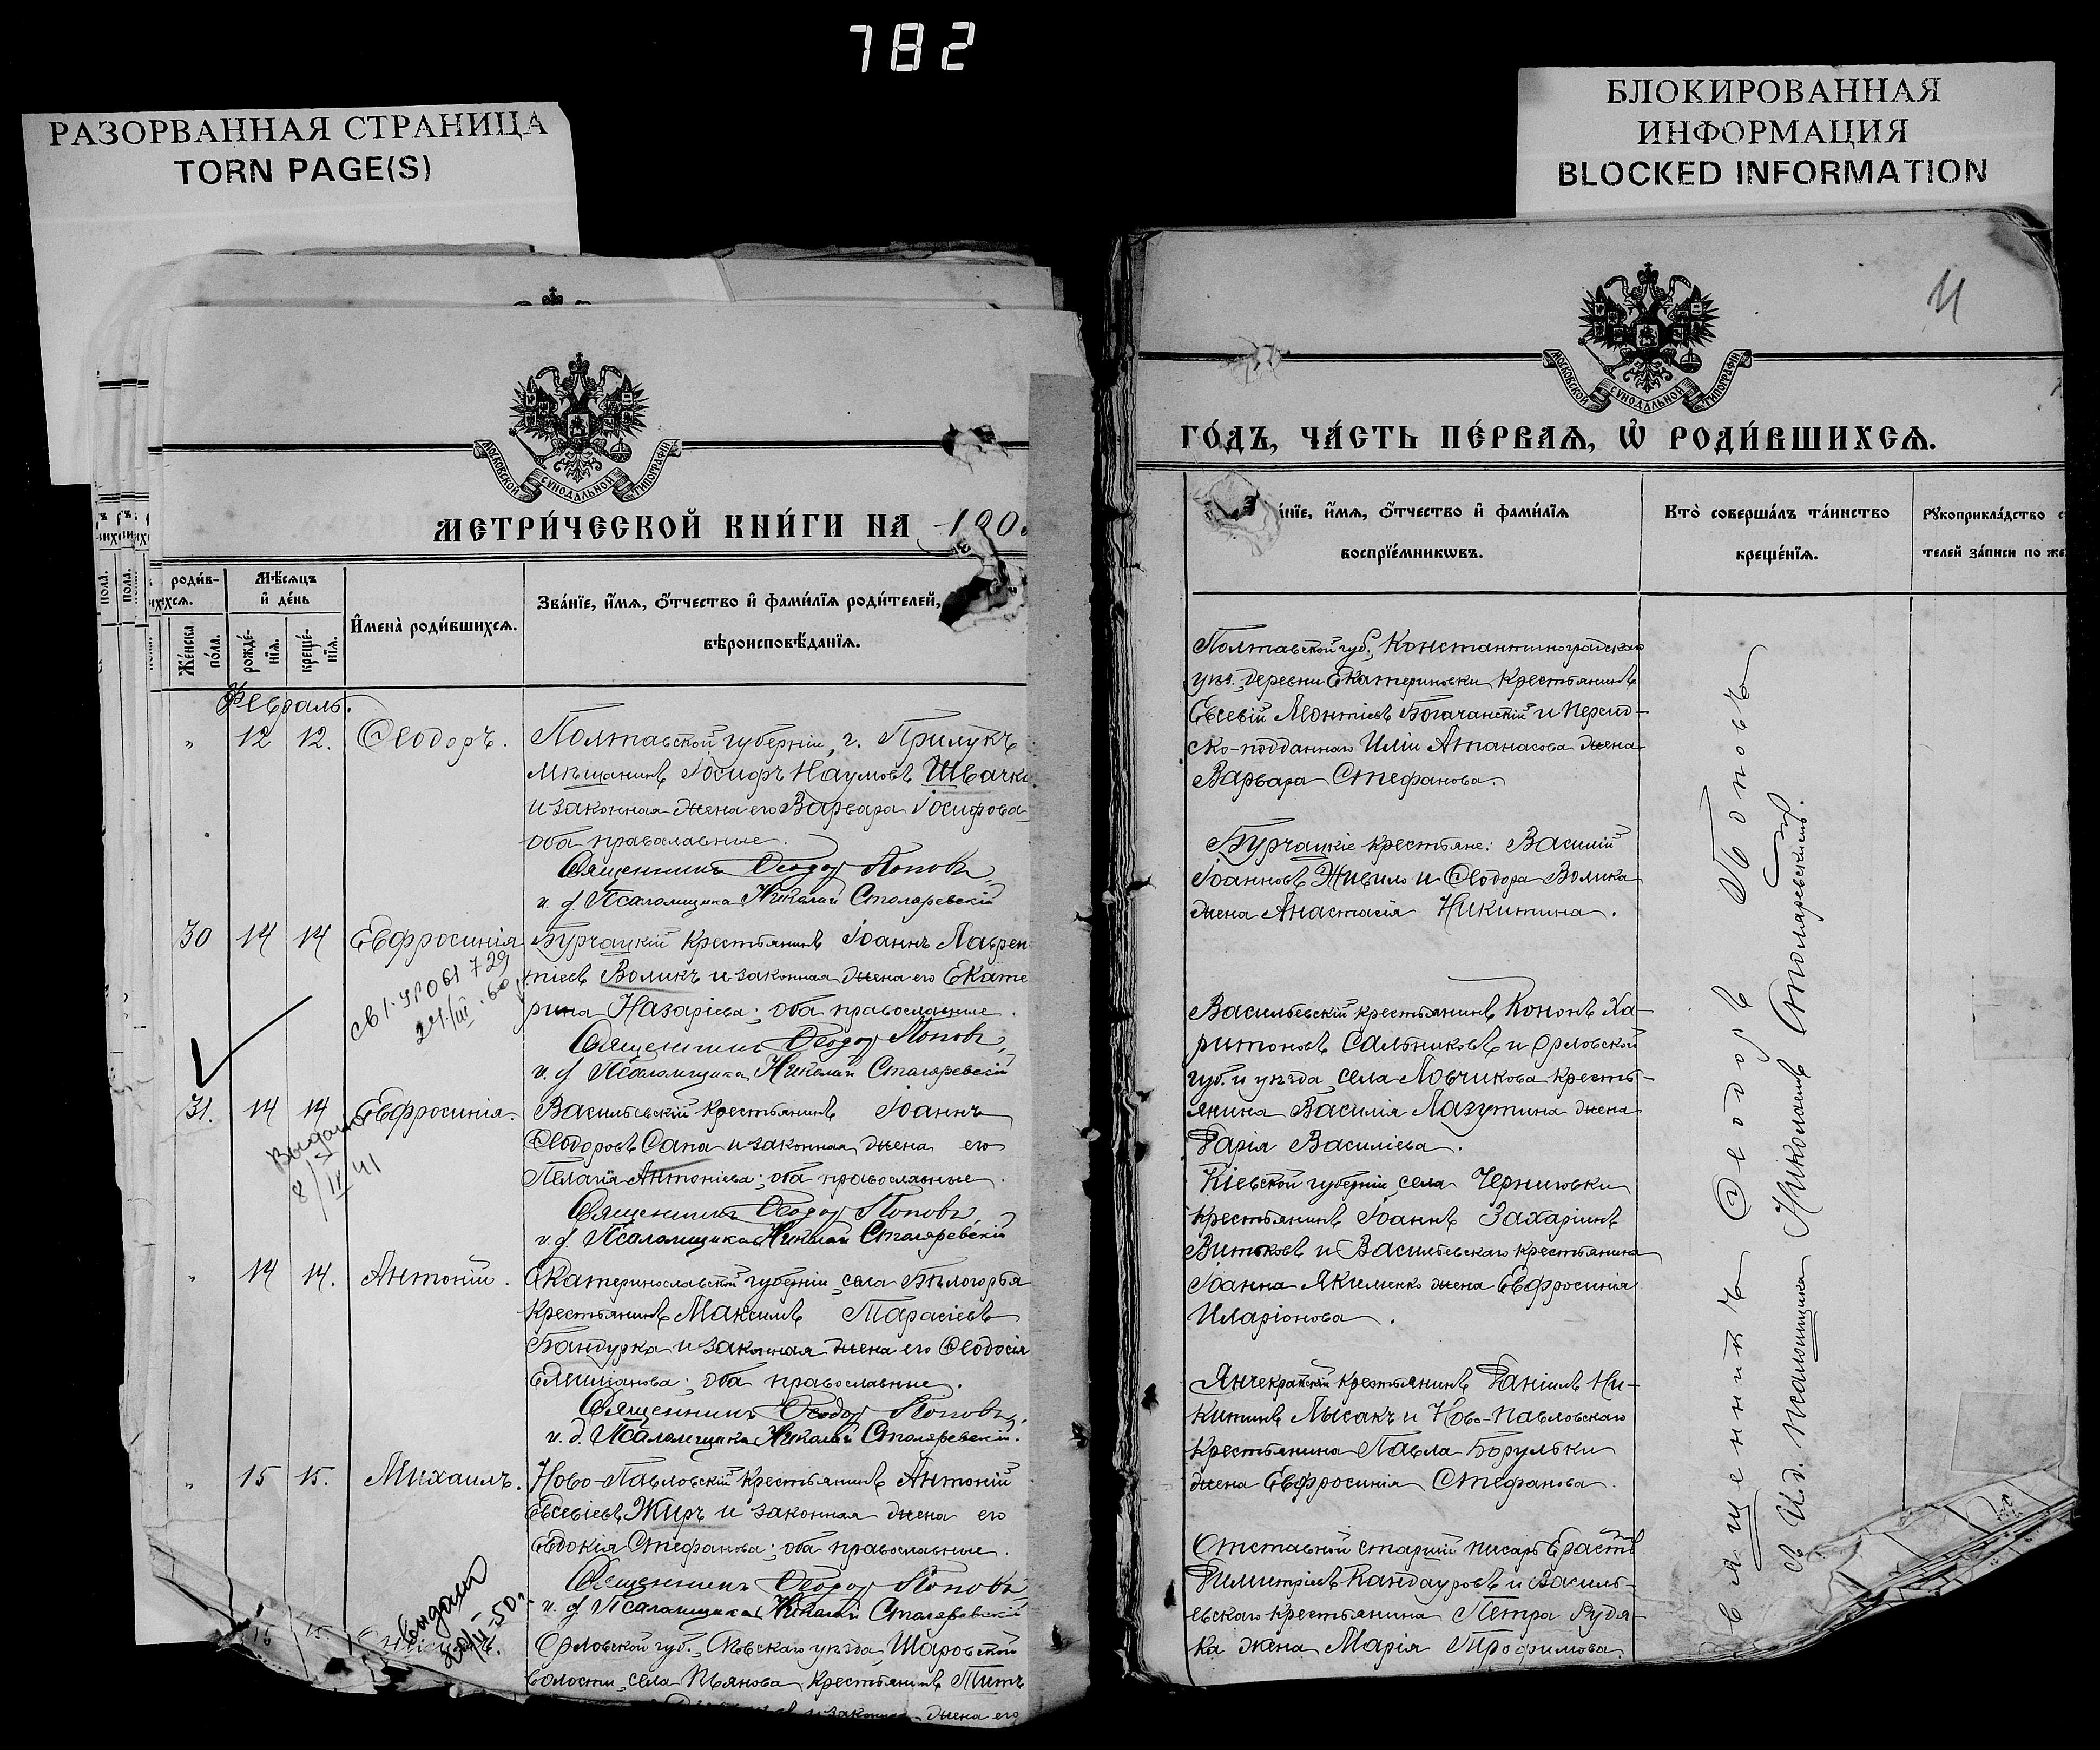 782
РАЗОРВАННАЯ СТРАНИЦА
TORN PAGE(S)
БЛОКИРОВАННАЯ
ИНФОРМАЦИЯ
BLOCKED INFORMATION
МОСКОВСКОЙ СѴНОДАЛЬНОЙ ТИПОГРАФІИ
МЕТРИ́ЧЕСКОЙ КНИ́ГИ НА 190
роди́в-
шихсѧ.
Же́нска по́ла.
Мѣ́сѧцъ
и҆ де́нь
рожде́-
нїѧ.
креще́-
нїѧ.
И҆мена̀ роди́вшихсѧ.
Зва́нїе, и҆́мѧ, ѻ҆́тчество и҆ фами́лїѧ роди́телей,
вѣроисповѣ́данїѧ.
Февраль.
" 12 12. Ѳеодоръ.
Полтавской губерніи, г. Прилукъ
мѣщанинъ Іосифъ Наумовъ Швачк
и законная жена его Варвара Іосифова
оба православные.
Священникъ Ѳеодор Поповъ
и. д. Псаломщика Николай Столяревскій
30 14 14 Евфросинія
Бурчацкій крестьянинъ Іоаннъ Лаврен
тіевъ Воликъ и законная жена его Екате
рина Назаріева; оба православные.
Священникъ Ѳеодор Поповъ
и. д. Псаломщика Николай Столяревскій
31. 14 14 Евфросинія.
Выдано
8/IV 41
Васильевскій крестьянинъ Іоаннъ
Ѳеодоровъ Сапа и законная жена его
Пелагія Антоніева; оба православные.
Священникъ Ѳеодор Поповъ
и. д. Псаломщика Николай Столяревскій
" 14 14. Антоній.
Екатеринославской губерніи, села Бѣлогорья
крестьянинъ Максимъ Тарасіевъ
Бандурка и законная жена его Ѳеодосія
Емиліанова; оба православные.
Священникъ Ѳеодор Поповъ
и. д. Псаломщика Николай Столяревскій.
" 15 15. Михаилъ.
Ново-Павловскій крестьянинъ Антоній
Евсевіевъ Жиръ и законная жена его
Евдокія Стефанова; оба православные.
Священникъ Ѳеодор Поповъ
и. д. Псаломщика Николай Столяревскій
выдан
Орловской губ., Сѣвскаго уѣзда, Шаровской
волости, села Пьянова крестьянинъ Титъ
и законная жена его
11
МОСКОВСКОЙ СѴНОДАЛЬНОЙ ТИПОГРАФІИ
ГО́ДЪ, ЧА́СТЬ ПЕ́РВАѦ, Ѡ҆ РОДИ́ВШИХСѦ.
а́нїе, и҆́мѧ, ѻ҆́тчество и҆ фами́лїѧ
воспрїе́мникѡвъ.
Кто̀ соверша́лъ та́инство
креще́нїѧ.
Рꙋкоприкла́дство с
телей за́писи по же
Полтавской губ., Константиноградскаго
уѣз., деревни Екатериновки крестьянинъ
Евсевій Леонтіевъ Богачанскій и персид-
ско-подданнаго Иліи Атанасова жена
Варвара Стефанова.
Бурчацкіе крестьяне: Василій
Іоанновъ Живило и Ѳеодора Волика
жена Анастасія Никитина.
Васильевскій крестьянинъ Кононъ Ха-
ритоновъ Сальниковъ и Орловской
губ. и уѣзда, села Ловчикова кресть-
янина Василія Лазутина жена
Дарія Василіева.
Кіевской губерніи села Черниговки
крестьянинъ Іоаннъ Захаріинъ
Витьковъ и Васильевскаго крестьянина
Іоанна Якименко жена Евфросинія
Иларіонова.
Янчекракскій крестьянинъ Даніилъ Ни-
китинъ Лысакъ и Ново-Павловскаго
крестьянина Павла Борульки
жена Евфросинія Стефанова.
Отставной старшій писарь Ерастъ
Димитріевъ Кандауровъ и Василь-
евскаго крестьянина Петра Рудя-
ка жена Марія Трофимова.
Священникъ Ѳеодоръ Поповъ
съ И.д. псаломщика Николаемъ Столяревскимъ.